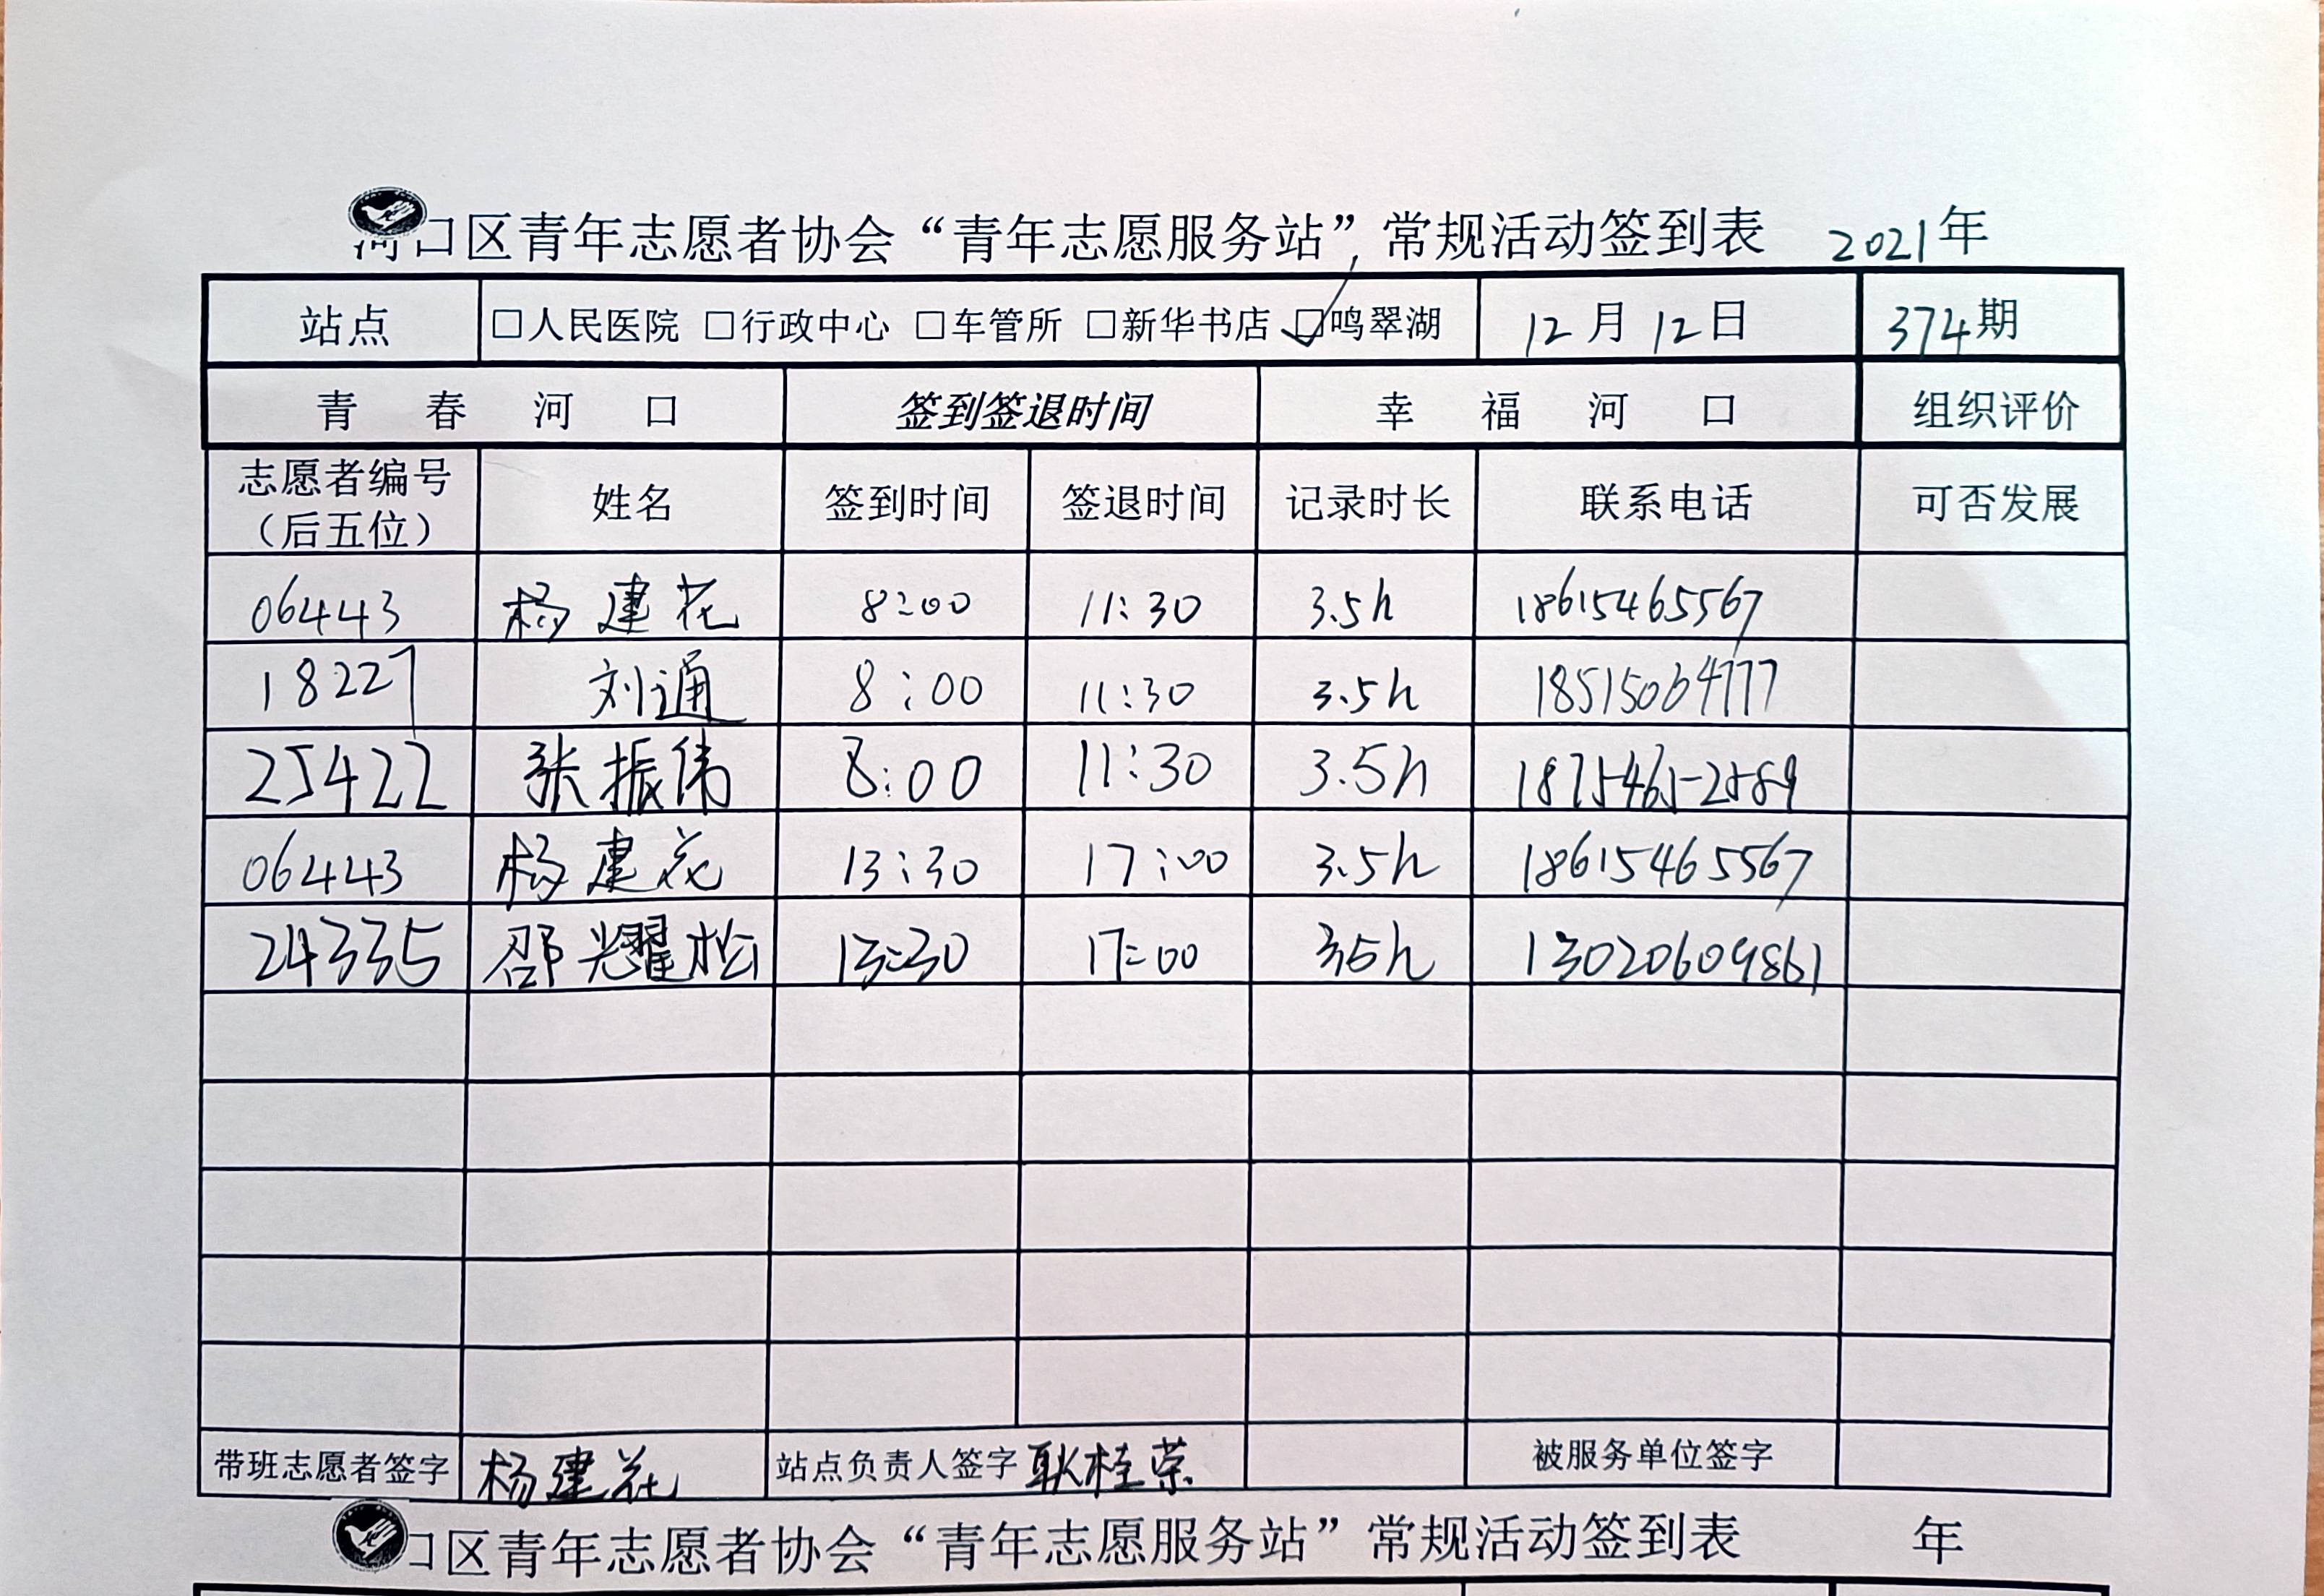 河口区青年志愿者协会“青年志愿服务站”常规活动签到表 2021年
站点 □人民医院 □行政中心 □车管所 □新华书店 ☑鸣翠湖 12月12日 374期
青春河口 签到签退时间 幸福河口 组织评价
志愿者编号（后五位） 姓名 签到时间 签退时间 记录时长 联系电话 可否发展
06443 杨建花 8:00 11:30 3.5h 18615465567
18227 刘通 8:00 11:30 3.5h 18515064777
25422 张振伟 8:00 11:30 3.5h 18754652589
06443 杨建花 13:30 17:00 3.5h 18615465567
24335 邵耀松 13:30 17:00 3.5h 13020609861
带班志愿者签字 杨建花 站点负责人签字 耿桂荣 被服务单位签字
口区青年志愿者协会“青年志愿服务站”常规活动签到表 年